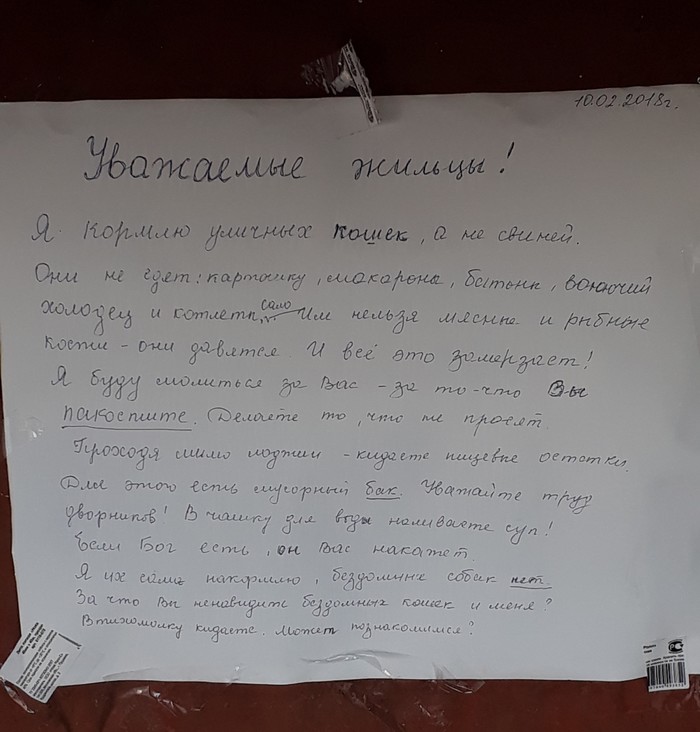 10.02.2018г.
Уважаемые жильцы!
Я кормлю уличных кошек, а не свиней.
Они не едят: картошку, макароны, батоны, воюючий
холодец и котлеты, сало Им нельзя мясные и рыбные
кости - они давятся. И всё это замерзает!
Я буду молиться за Вас - за то-что Вы
пакостите. Делаете то, что не просят.
Проходя мимо лоджии - кидаете пищевые остатки.
Для этого есть мусорный бак. Уважайте труд
дворников! В чашку для воды наливаете суп!
Если Бог есть, он Вас накажет
Я их сама накормлю, бездомных собак нет.
За что Вы ненавидите бездомных кошек и меня?
Втихомолку кидаете. Может познакомимся?